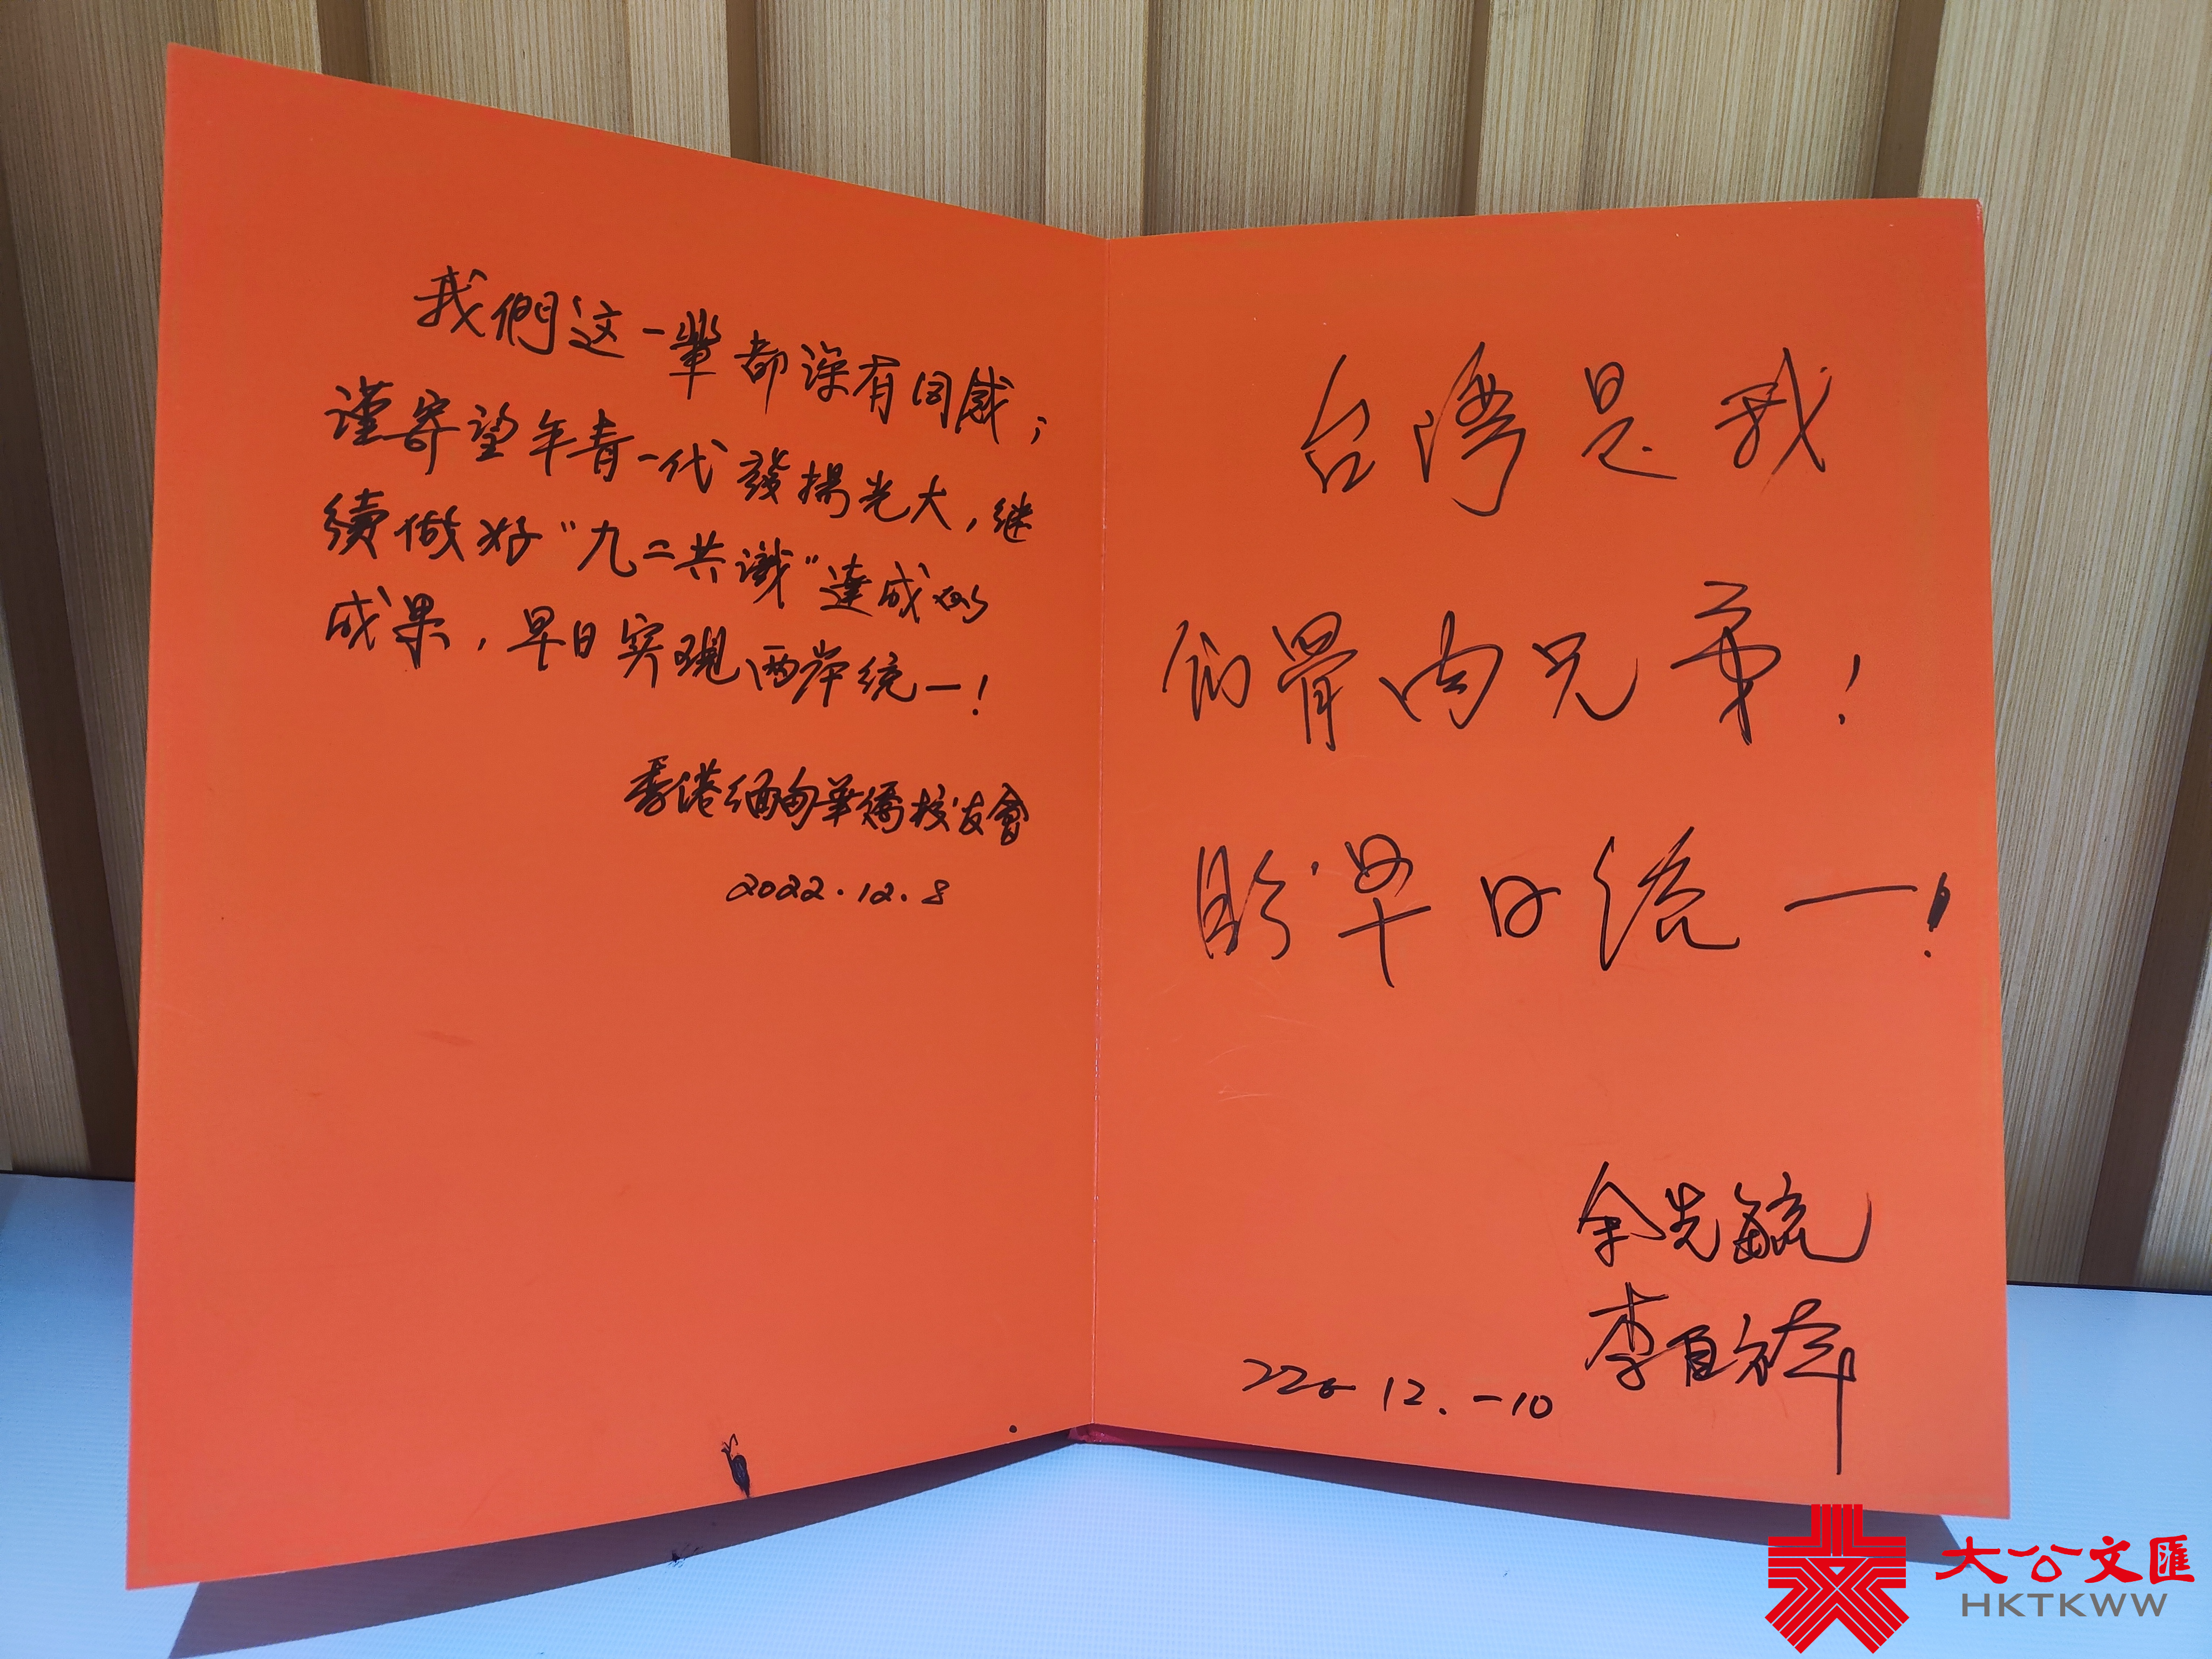 我們这一輩都深有同感；
谨寄望年青一代發揚光大，继
續做好“九二共識”達成的
成果，早日实現两岸统一！
香港缅甸華僑校友會
2022.12.8
台湾是我
们骨肉兄弟！
盼早日统一！
余先毓
李自祥
12.-10
大公文匯
HKTKWW